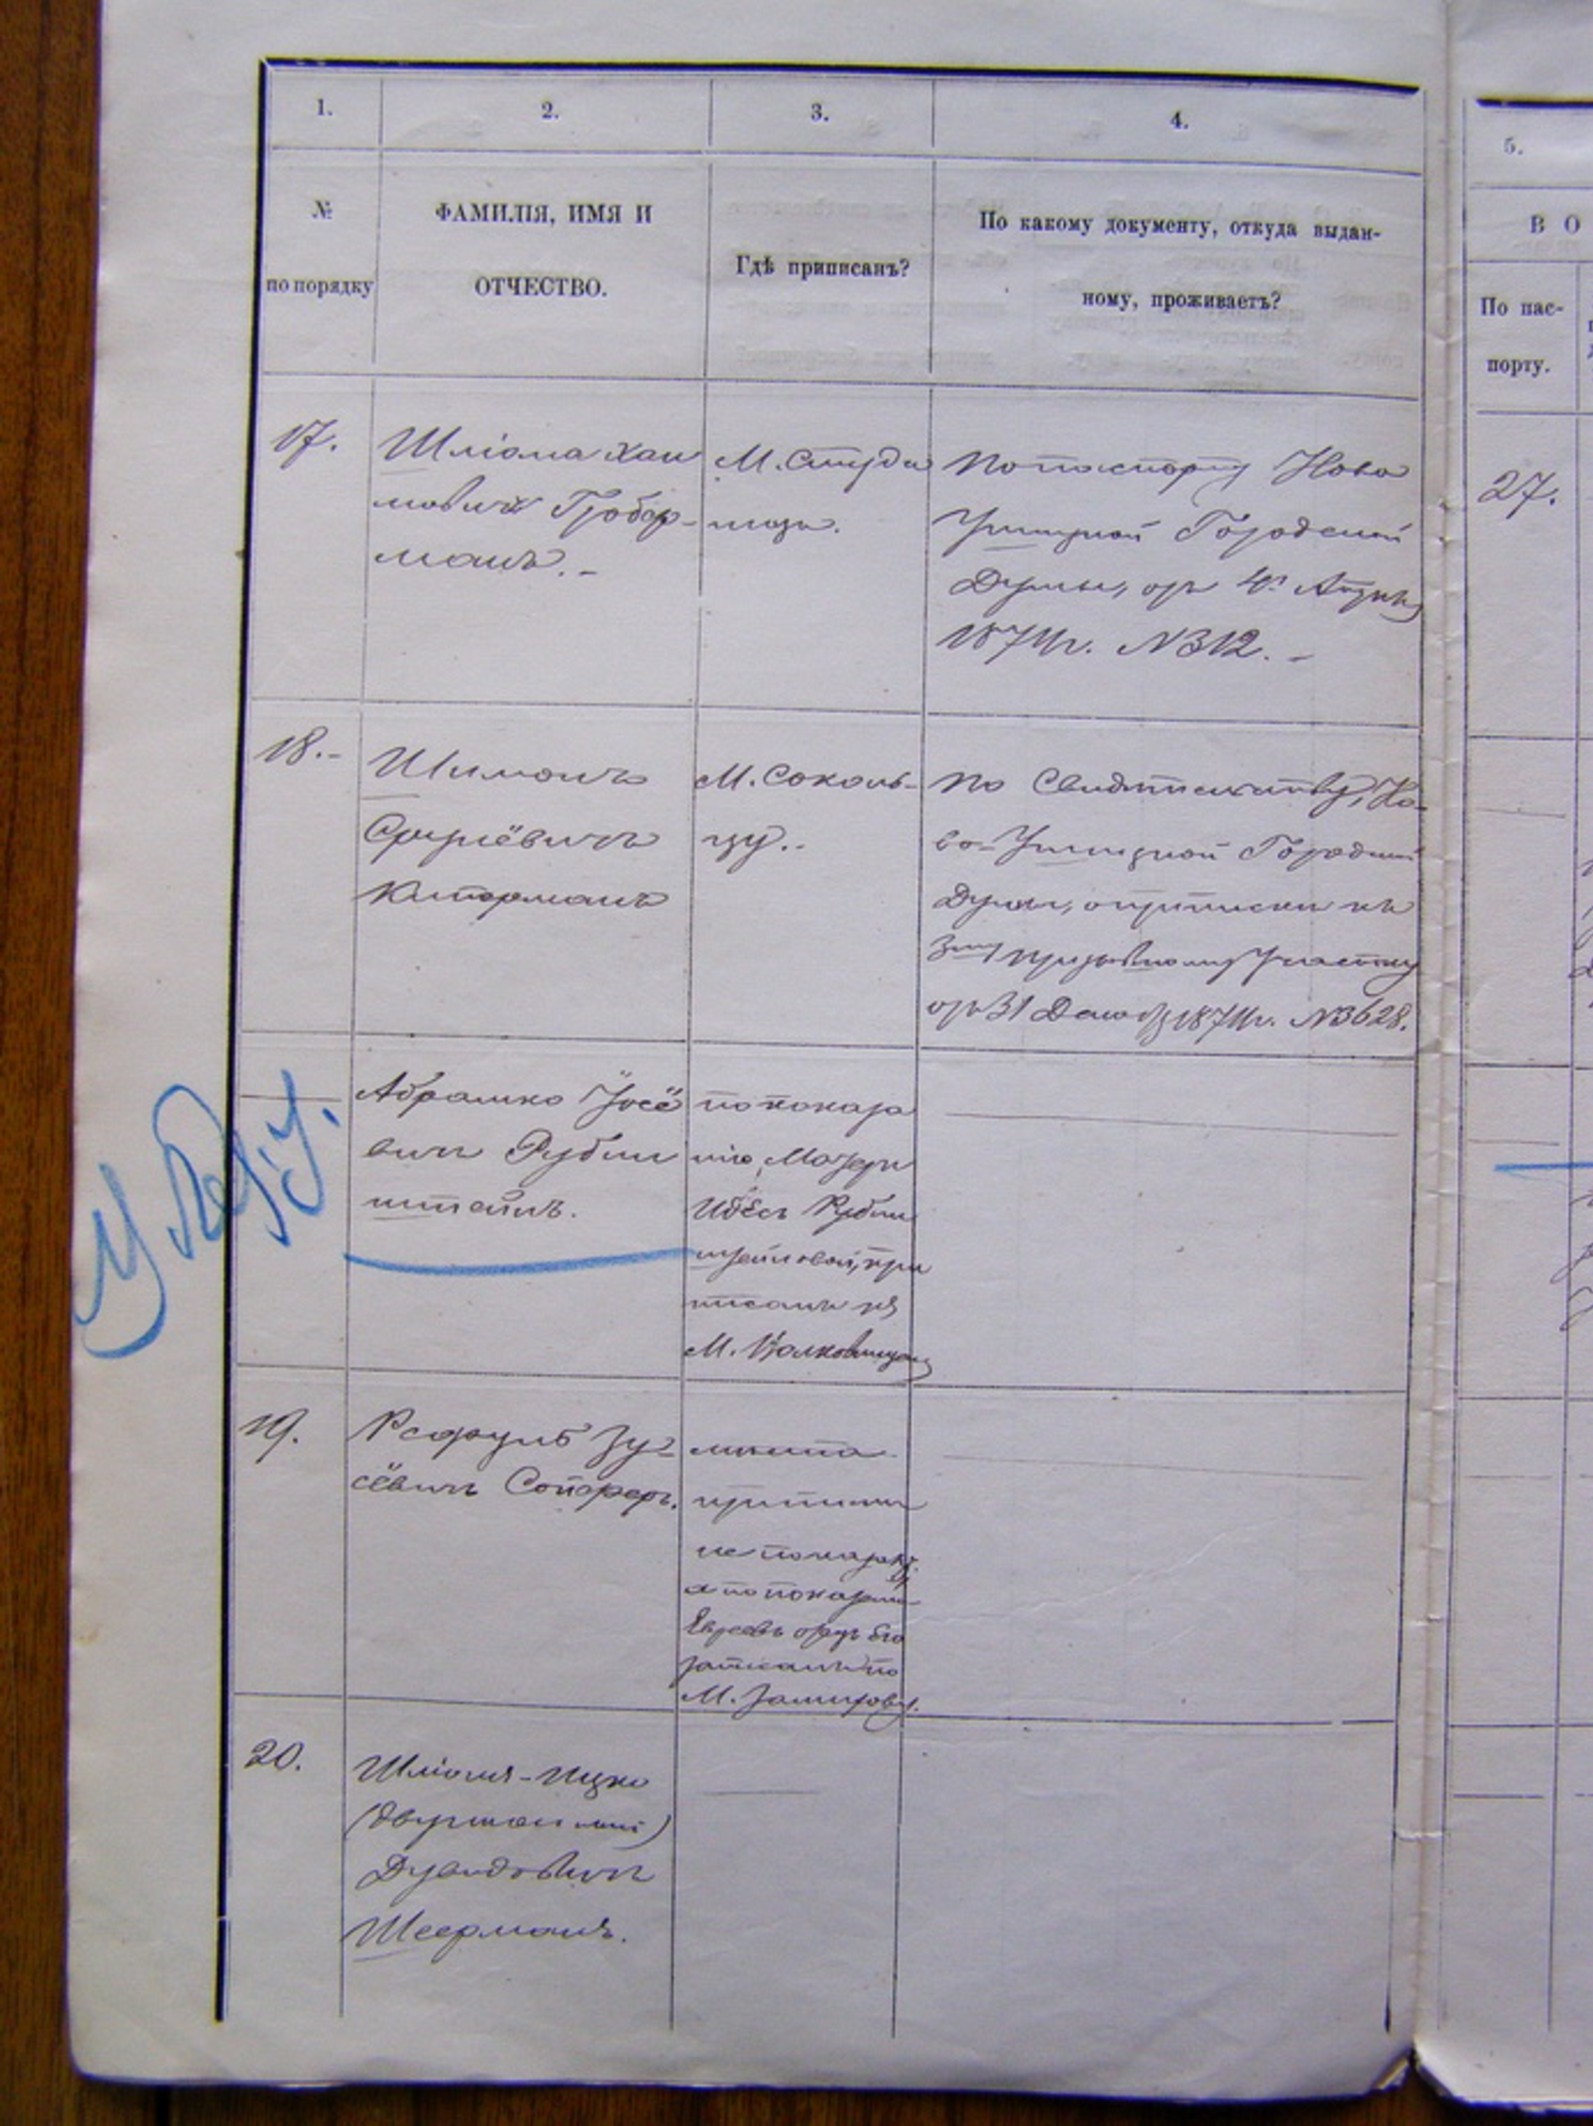 1.
2.
3.
4.
5.
№
по порядку
ФАМИЛІЯ, ИМЯ И
ОТЧЕСТВО.
Гдѣ приписанъ?
По какому документу, откуда выдан-
ному, проживаетъ?
В О
По пас-
порту.
17.
Шліома Хаи
мовичъ Гробер-
манъ.-
М. Студе
ница.
По паспорту Ново
Ушицкой Городской
Думы, отъ 4
1874 г. №312.-
27.
18.-
Шимонъ
Сруліёвичъ
Китерманъ
М. Соколь-
цу.-
По Свидѣтельству, Но-
во-Ушицкой Городской
Думы, о припискѣ къ
3му призывному Участку
отъ 31 Декаб 1874 г. №3628.
Абрамко Іосё
вичъ Рубин
штейнъ.
по показа
нію Матери
Рубин
штейновой, при
писанъ къ
М.
19.
Рафулъ Зу-
сёвичъ Сойферъ.
мѣста
приписки
не показ
а по показанію
Евреевъ отецъ его
записанъ по
М. Замихову.
20.
Шліома-Ицко
(двуименный)
Дувидовичъ
Шеерманъ.